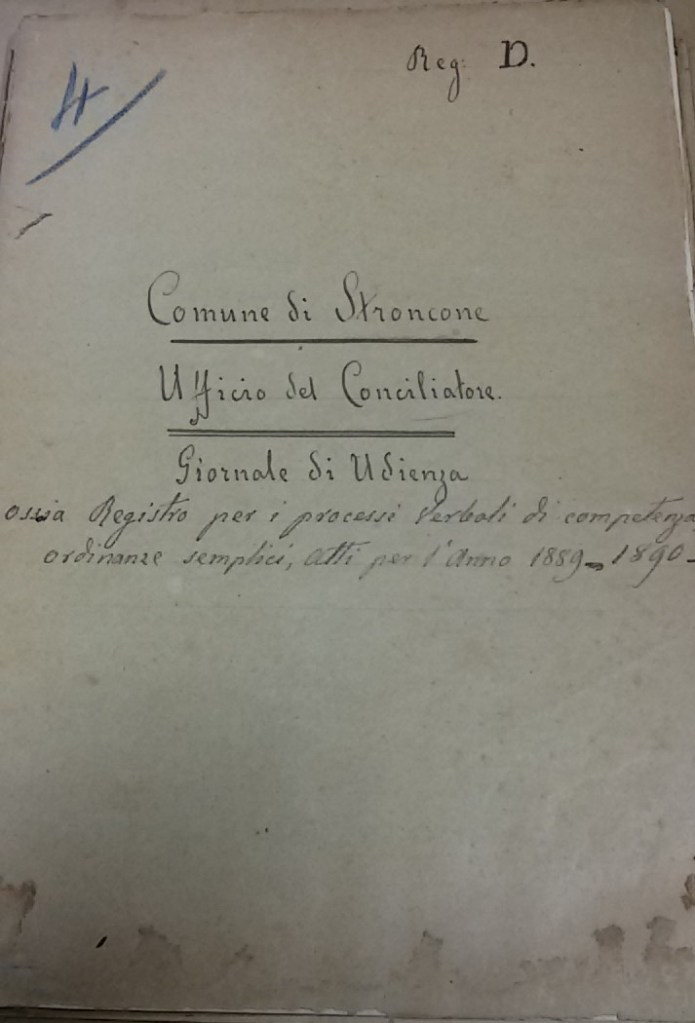 4
Reg: D.
Comune di Stroncone
Ufficio del Conciliatore.
Giornale di Udienza
ossia Registro per i processi verbali di competenza
ordinanze semplici, atti per l'Anno 1889-1890-